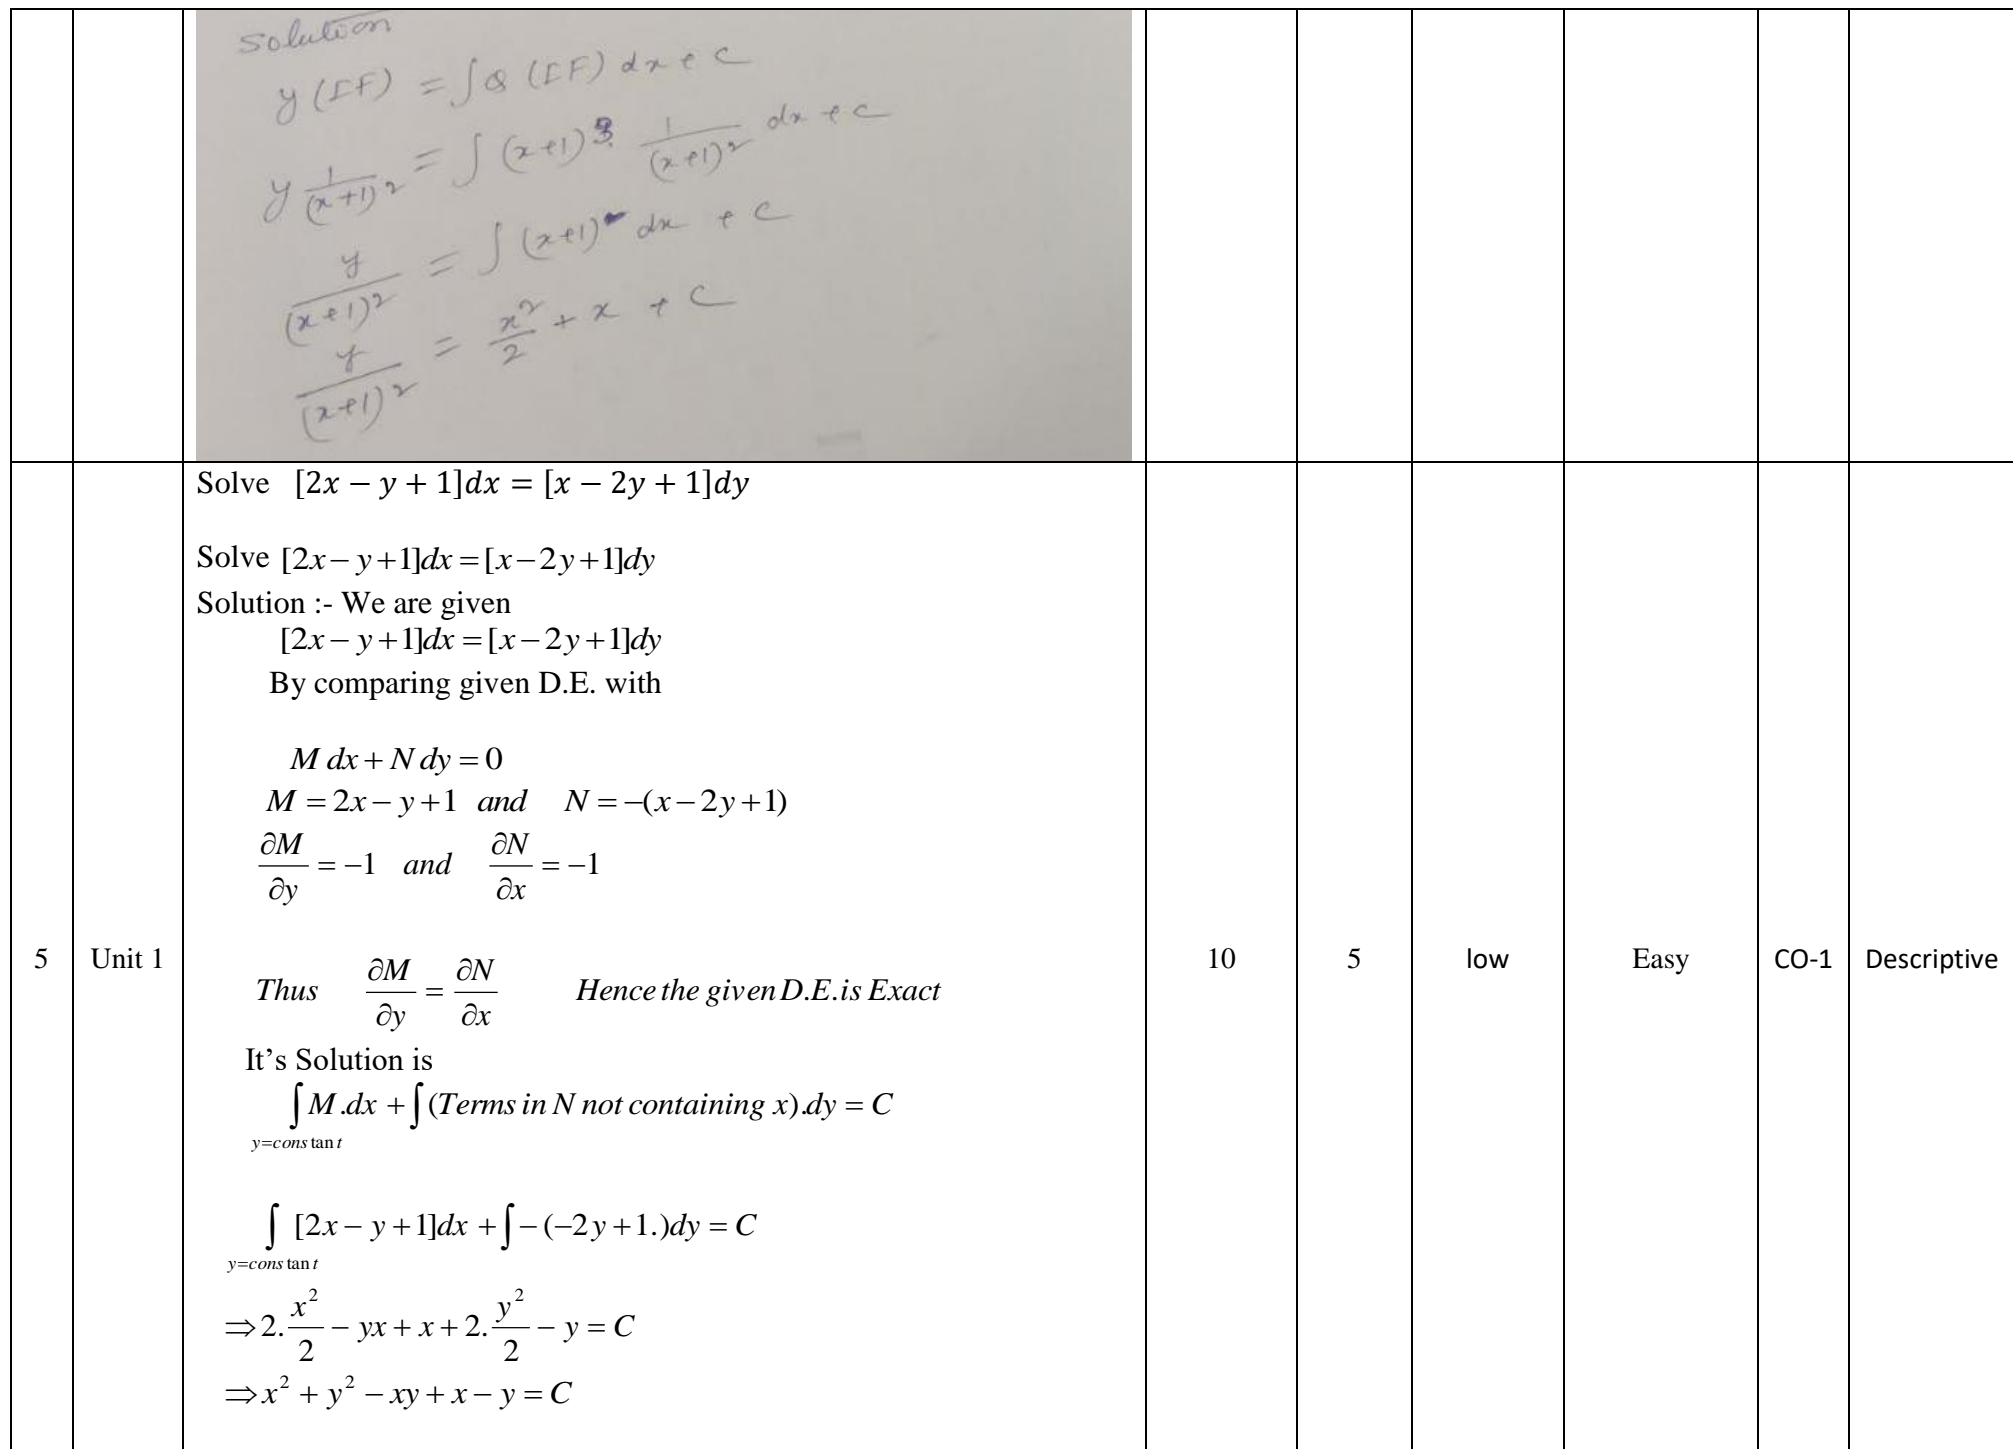 Solution
y (IF) = ∫Q (IF) dx + c
y 1/(x+1)² = ∫ (x+1)³ 1/(x+1)² dx + c
y/(x+1)² = ∫ (x+1) dx + c
y/(x+1)² = x²/2 + x + c
5
Unit 1
Solve [2x − y + 1]dx = [x − 2y + 1]dy
Solve [2x − y + 1]dx = [x − 2y + 1]dy
Solution :- We are given
[2x − y + 1]dx = [x − 2y + 1]dy
By comparing given D.E. with
M dx + N dy = 0
M = 2x − y + 1 and N = −(x − 2y + 1)
∂M/∂y = −1 and ∂N/∂x = −1
Thus ∂M/∂y = ∂N/∂x Hence the given D.E. is Exact
It’s Solution is
∫M.dx + ∫(Terms in N not containing x).dy = C
y=cons tan t
∫ [2x − y + 1]dx + ∫ − (−2y + 1.)dy = C
y=cons tan t
⇒ 2. x²/2 − yx + x + 2. y²/2 − y = C
⇒ x² + y² − xy + x − y = C
10
5
low
Easy
CO-1
Descriptive